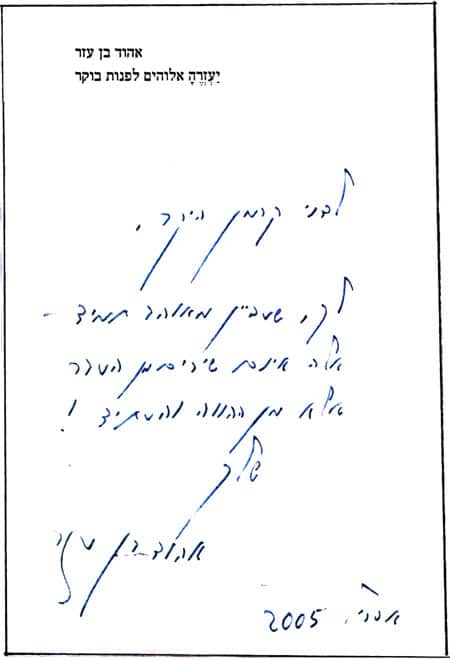 אהוד בן עזר
יַעְזְרֶהָ אלוהים לפנות בוקר
לבני קרמן היקר,
לך, שעדיין מאוהב תמיד –
אלה אינם שירים מן העבר
אלא מן ההווה והעתיד!
שלך
אהוד בן עזר
אפריל 2005